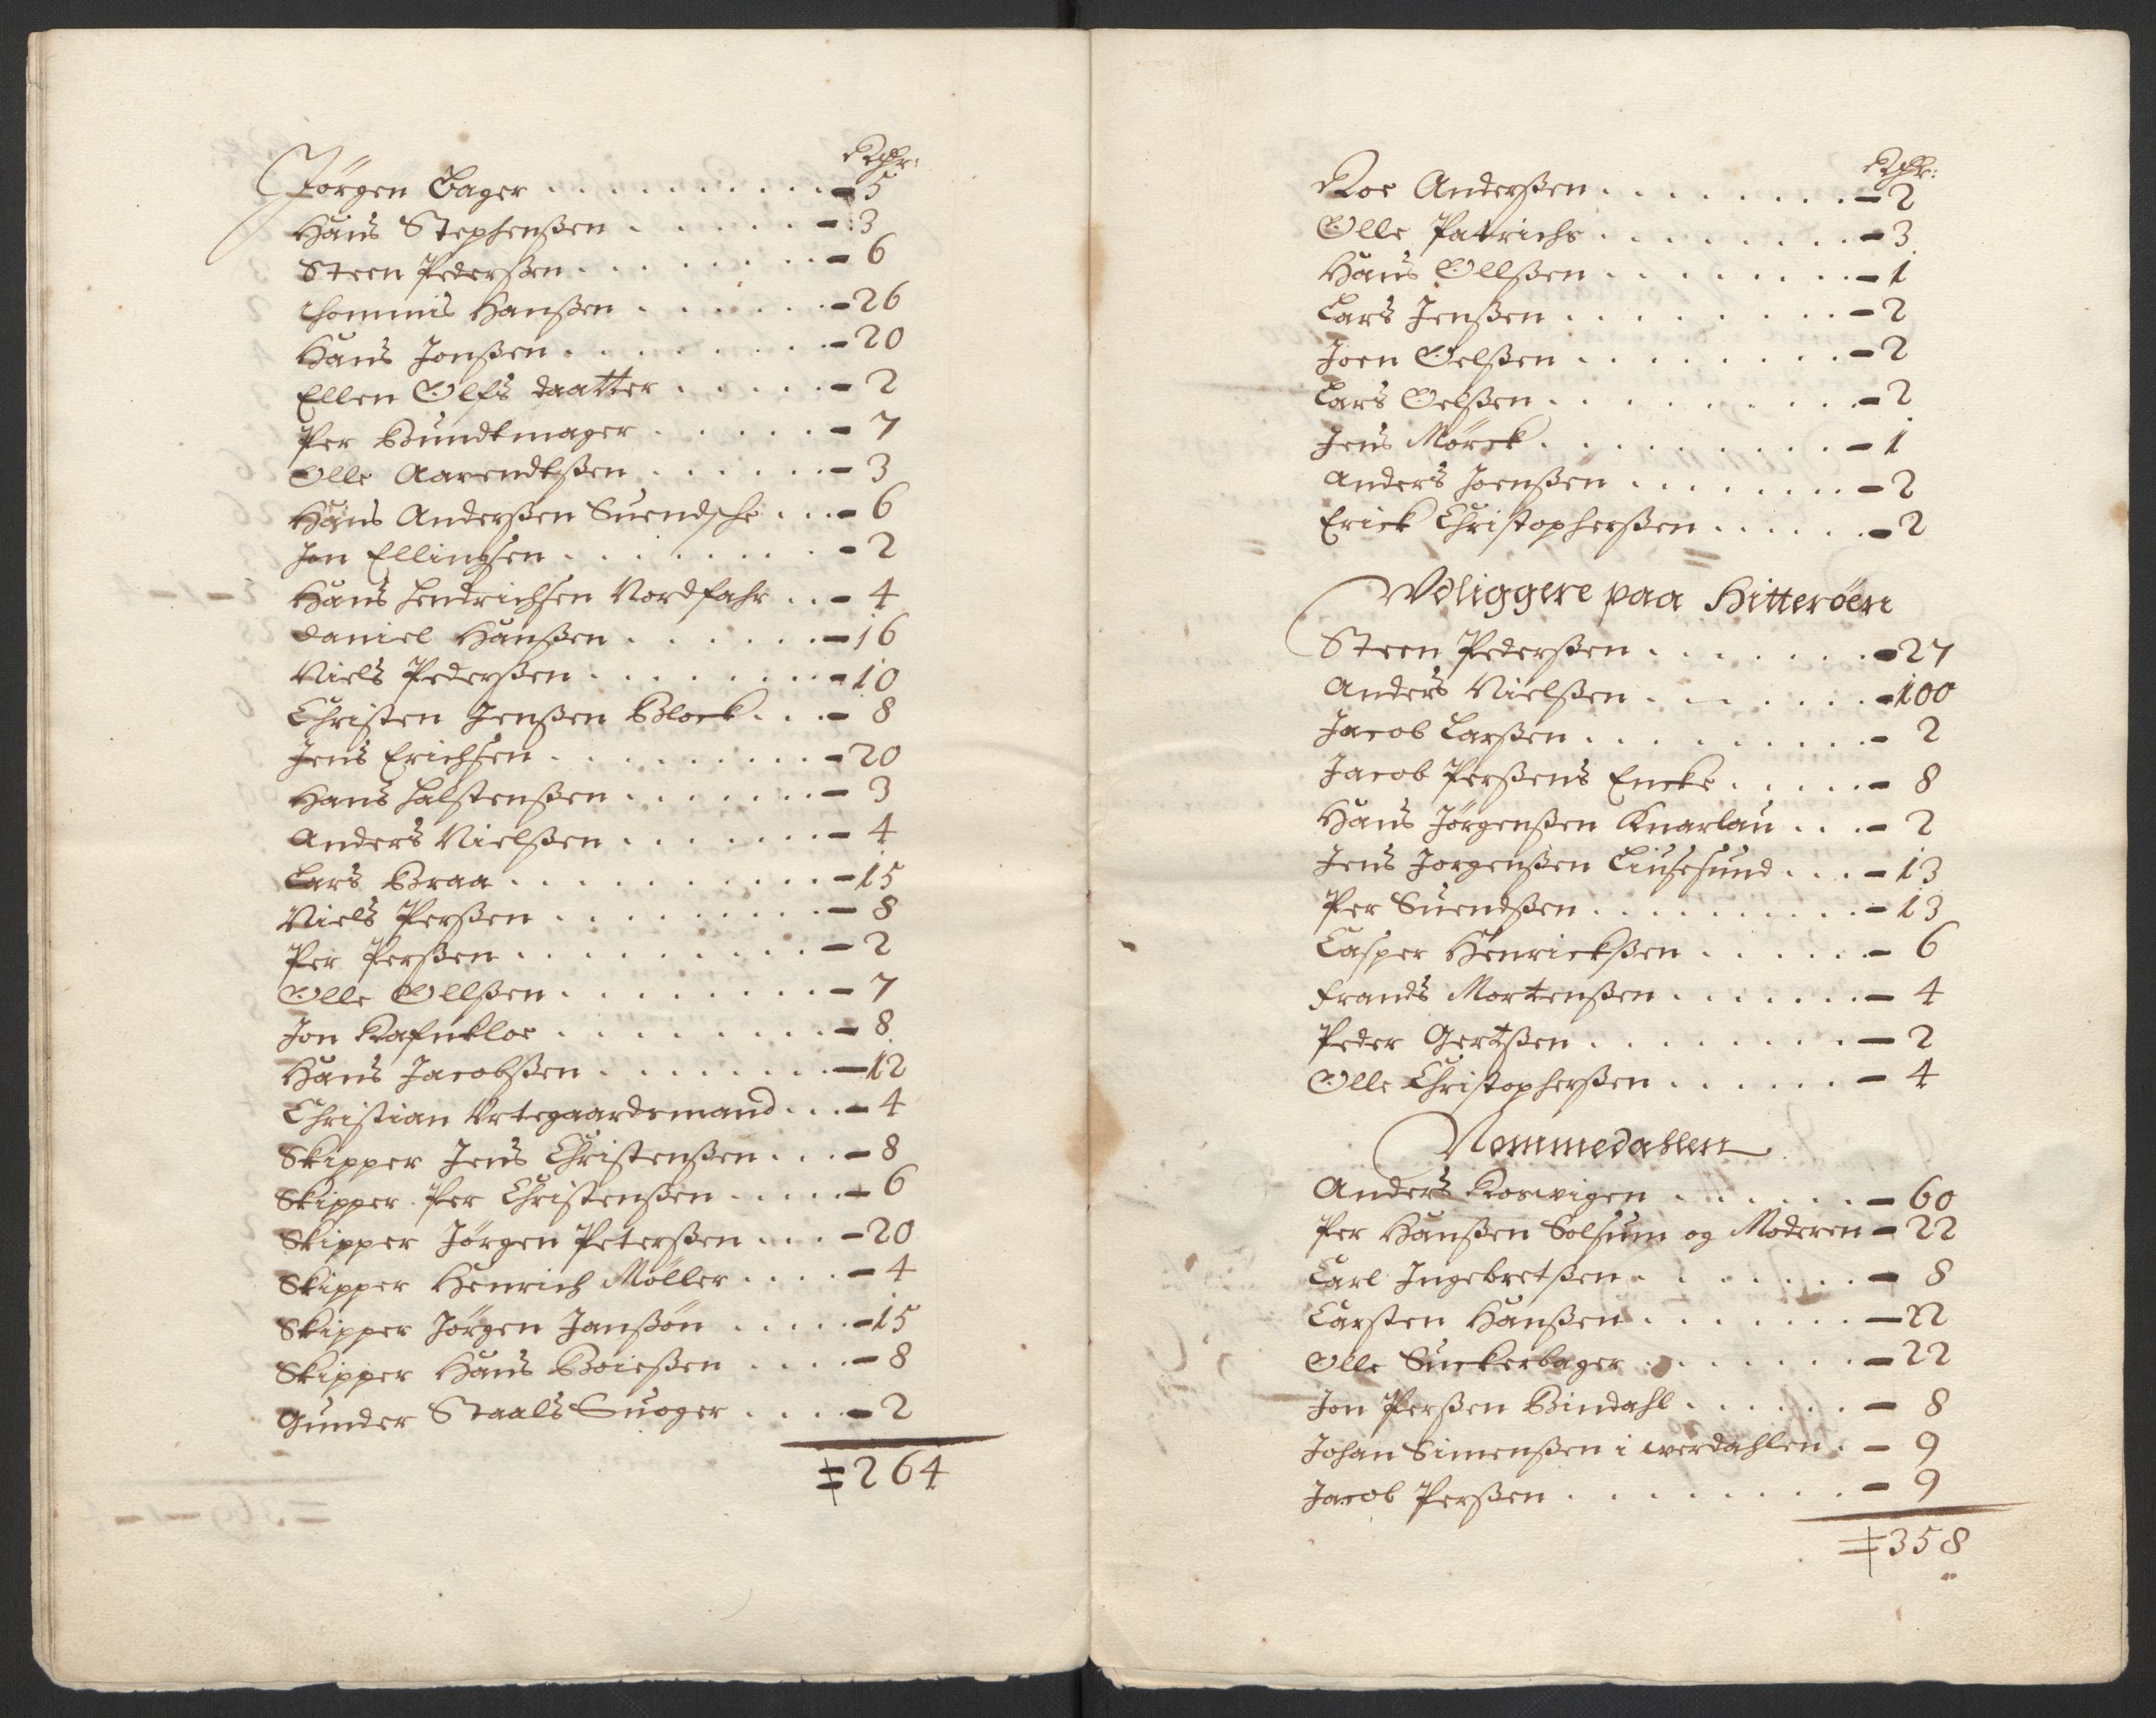 Rdhr:
Jörgen Bager . . . . . . . . . . - 5
Hans Stephenßen . . . . . . - 3
Steen Pederßen . . . . . . . . - 6
Thommis Hanßen . . . . . . - 26
Hans Jonßen . . . . . . . . - 20
Ellen Olfs daatter . . . . . - 2
Per Bundtmager . . . . . - 7
Olle Aarendtßen . . . . . . - 3
Hans Anderßen Suendsche . . . - 6
Jon Ellingsen . . . . . . . . - 2
Hans Hendrichsen Nordfahr . . - 4
Daniel Hanßen . . . . . . - 16
Niels Pederßen . . . . . . . . - 10
Christen Jenßen Block . . . - 8
Jens Erichsen . . . . . . . . . - 20
Hans Halstenßen . . . . . . . - 3
Anders Nielßen . . . . . . . - 4
Lars Braa . . . . . . . . . . - 15
Niels Perßen . . . . . . . . - 8
Per Perßen . . . . . . . . . - 2
Olle Ollßen . . . . . . . . - 7
Jon Rafnkloe . . . . . . . . - 8
Hans Jacobßen . . . . . . . - 12
Christian Urtegaardsmand . . . - 4
Skipper Jens Christenßen . . . - 8
Skipper Per Christenßen . . . . . - 6
Skipper Jörgen Peterßen . . . - 20
Skipper Henrich Möller . . . . - 4
Skipper Jörgen Janßön . . . . . - 15
Skipper Hans Boießen . . . . - 8
Gunder Staals Suoger . . . . - 2
= 264
Rdhr:
Roe Anderßen . . . . . . . . - 2
Olle Patrichs . . . . . . . . - 3
Hans Ollßen . . . . . . . . - 1
Lars Jenßen . . . . . . . . . - 2
Joen Oelßen . . . . . . . . - 2
Lars Oelßen . . . . . . . . . - 2
Jens Mörck . . . . . . . . . - 1
Anders Joenßen . . . . . . . . - 2
Erick Christopherßen . . . . . . - 2
Vdliggere paa Hitteröen
Steen Pederßen . . . . . . . - 27
Anders Nielßen . . . . . . . - 100
Jacob Larßen . . . . . . . . . - 2
Jacob Perßens Encke . . . . . - 8
Hans Jörgenßen Knarlau . . . - 2
Jens Jorgenßen Liusesund . . . - 13
Per Suendßen . . . . . . . . . - 13
Casper Henrickßen . . . . . . - 6
Frands Mortenßen . . . . . . . - 4
Peder Gertßen . . . . . . . . - 2
Olle Christopherßen . . . . . . - 4
Nommedahlen
Anders Koswigen . . . . . . - 60
Per Hanßen Solsum og Moderen - 22
Carl Ingebretßen . . . . . . . - 8
Carsten Hanßen . . . . . . . - 22
Olle Suckerbager . . . . . . . - 22
Jon Perßen Bindahl . . . . . . - 8
Johan Simenßen i Werdahlen . - 9
Jacob Perßen . . . . . . . . - 9
= 358